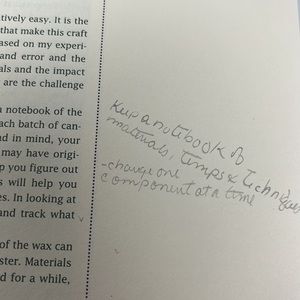 tively easy. It is the
that make this craft
ased on my experi-
and error and the
als and the impact
are the challenge
a notebook of the
ach batch of can-
nd in mind, your
may have origi-
p you figure out
s will help you
es. In looking at
and track what
of the wax can
ster. Materials
d for a while,
Keep a notebook of
materials, temps & techniques
-change one
component at a time